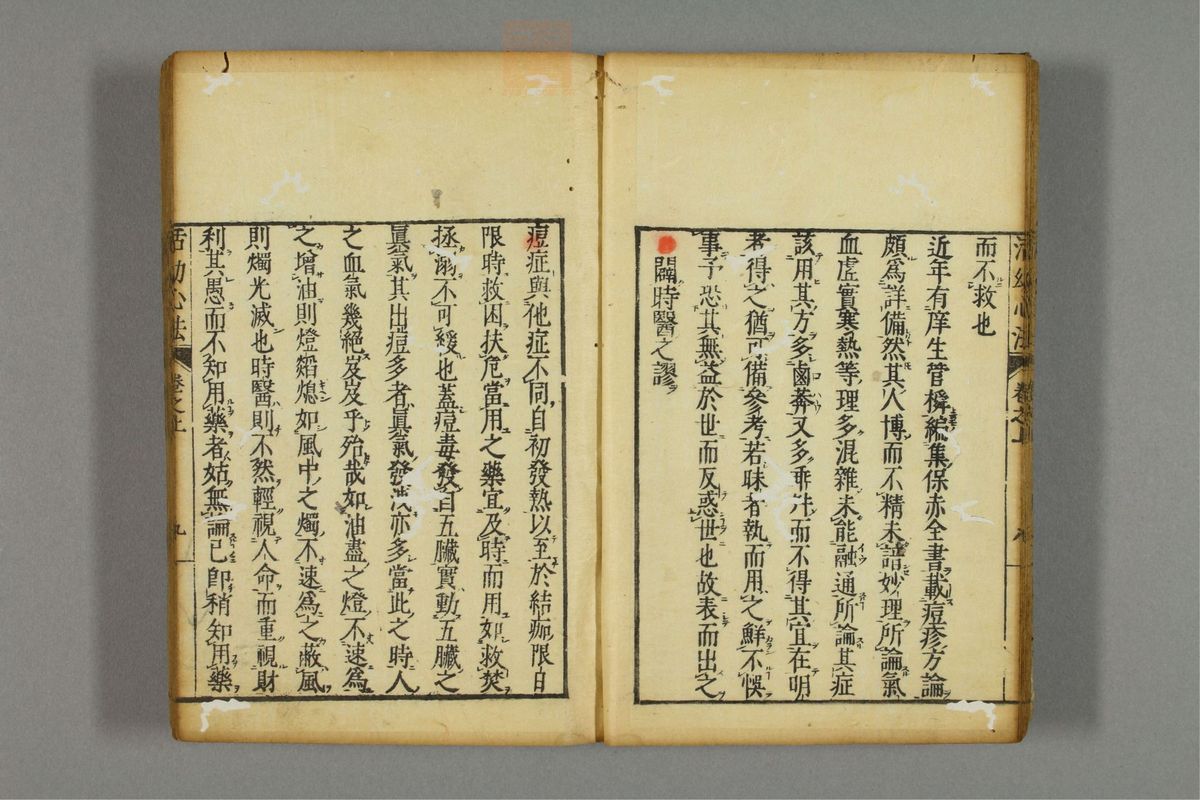 而不救也
近年有庠生管橓編集保赤全書載痘疹方論
頗爲詳備然其人博而不精未諳妙理所論氣
血虛實寒熱等理多混雜未能融通所論其症
該用其方多鹵莽又多乖汼而不得其宜在明
者得之猶可備參考若昧者執而用之鮮不悞
事予恐其無益於世而反惑世也故表而出之
闢時醫之謬
痘症與他症不同自初發熱以至於結痂限日
限時救困扶危當用之藥宜及時而用如救焚
拯溺不可緩也蓋痘毒發自五臟實動五臟之
眞氣其出痘多者眞氣發洩亦多當此之時人
之血氣幾絕岌岌乎殆哉如油盡之燈不速爲
之增油則燈熖熄如風中之燭不速爲之蔽風
則燭光滅也時醫則不然輕視人命而重視財
利其愚而不知用藥者姑無論已卽稍知用藥
活幼心法 卷之上 九